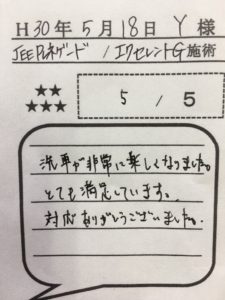 H30年5月18日 Y 様
JEEPレネゲード / エクセレントG 施術
★★
★★★
5 / 5
洗車が非常に楽しくなりました。
とても満足しています。
対応ありがとうございました。